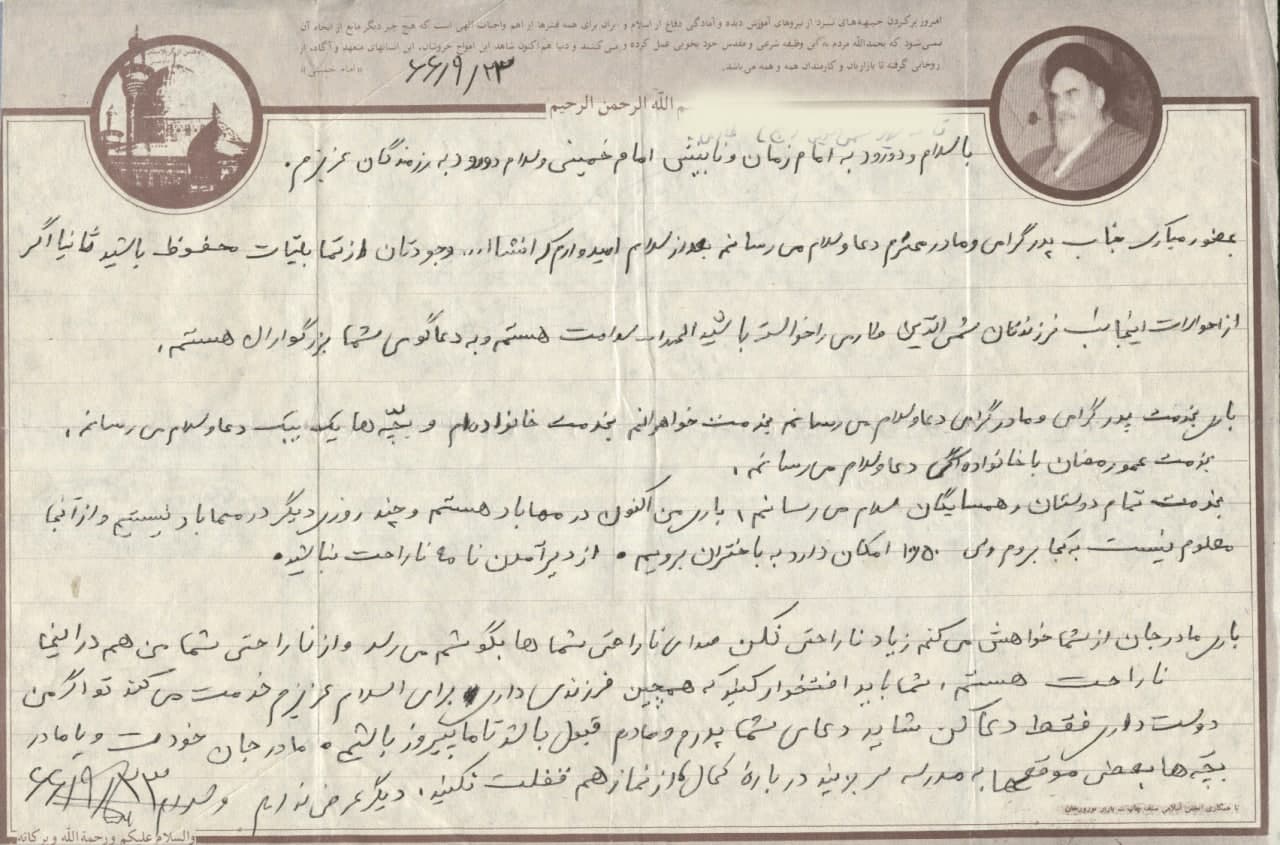 امروز پرکردن جبهه‌های نبرد از نیروهای آموزش دیده و آمادگی دفاع از اسلام و ایران برای همه قشرها از اهم واجبات الهی است که هیچ چیز دیگر مانع از انجام آن
نمی‌شود که بحمدالله مردم به این وظیفه شرعی و مقدس خود بخوبی عمل کرده و می‌کنند و دنیا هم اکنون شاهد این امواج خروشان، این انسانهای متعهد و آگاه از
روحانی گرفته تا بازاریان و کارمندان همه و همه می‌باشد. «امام خمینی»
۶۶/۹/۲۳
م الله الرحمن الرحیم
با سلام و دورود به امام زمان و نایبش امام خمینی و سلام دورود به رزمندگان عزیزم.
بحضور مبارک جناب پدر گرامی و مادر محترم دعا و سلام می رسانم بعد از سلام امیدوارم که انشاا... وجودتان از تما بلیّات محفوظ باشید ثانیا اگر
از احوالات اینجانب فرزندتان شمس الدین طارمی را خواسته باشید الحمدا... سلامت هستم و به دعاگوی شما بزرگواران هستم.
باری بخدمت پدر گرامی و مادر گرامی دعا و سلام می رسانم بخدمت خواهرانم بخدمت خانواده‌ام و بچّه ها یک بیک دعا و سلام می رسانم.
بخدمت عمو رمضان با خانواده‌اش دعا و سلام می رسانم.
بخدمت تمام دوستان و همسایگان سلام می رسانم، باری من اکنون در مهاباد هستم و چند روزی دیگر در مهاباد نیستیم و از آنجا
معلوم نیست به کجا بروم ولی ۵۰٪ امکان دارد به باختران برویم. از دیر آمدن نامه ناراحت نباشید.
باری مادر جان از شما خواهش می کنم زیاد ناراحتی نکن صدای ناراحتی شما ها بگوشم می رسد و از ناراحتی شما من هم در اینجا
ناراحت هستم، شما باید افتخوار کنید که همچین فرزندی داری برای اسلام عزیزم خدمت می کند تو اگر من
دوست داری فقط دعا کن شاید دعای شما پدرم و مادرم قبول باشد تا ما پیروز باشیم. مادر جان خودت و یا مادر
بچّه ها بعضی موقع‌ها به مدرسه سر بزنید درباره کمال، از نماز هم غفلت نکنید. دیگر عرضی ندارم والسلام ۶۶/۹/۲۳
والسلام علیکم و رحمة الله و برکاته